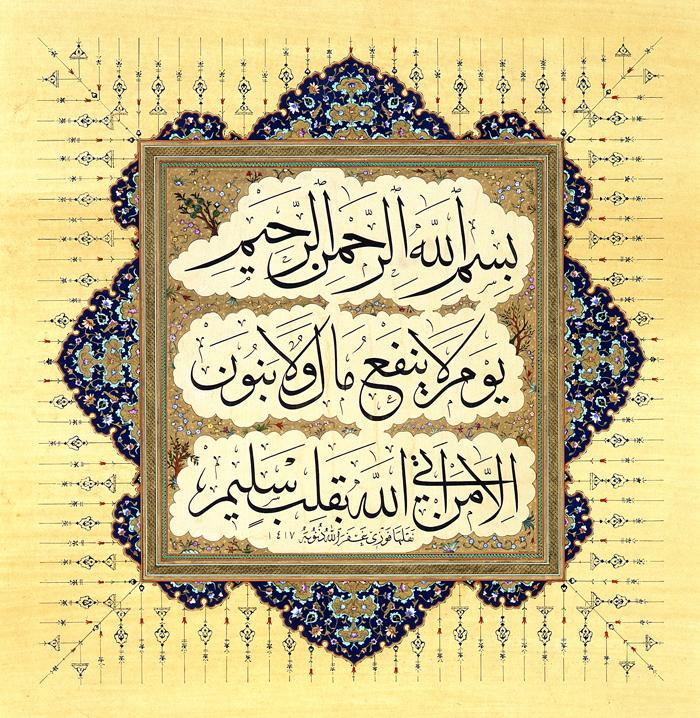 بسم الله الرحمن الرحيم
يوم لا ينفع مال ولا بنون
الا من اتى الله بقلب سليم
نقلها فوزي غفر الله ذنوبه ١٤١٧